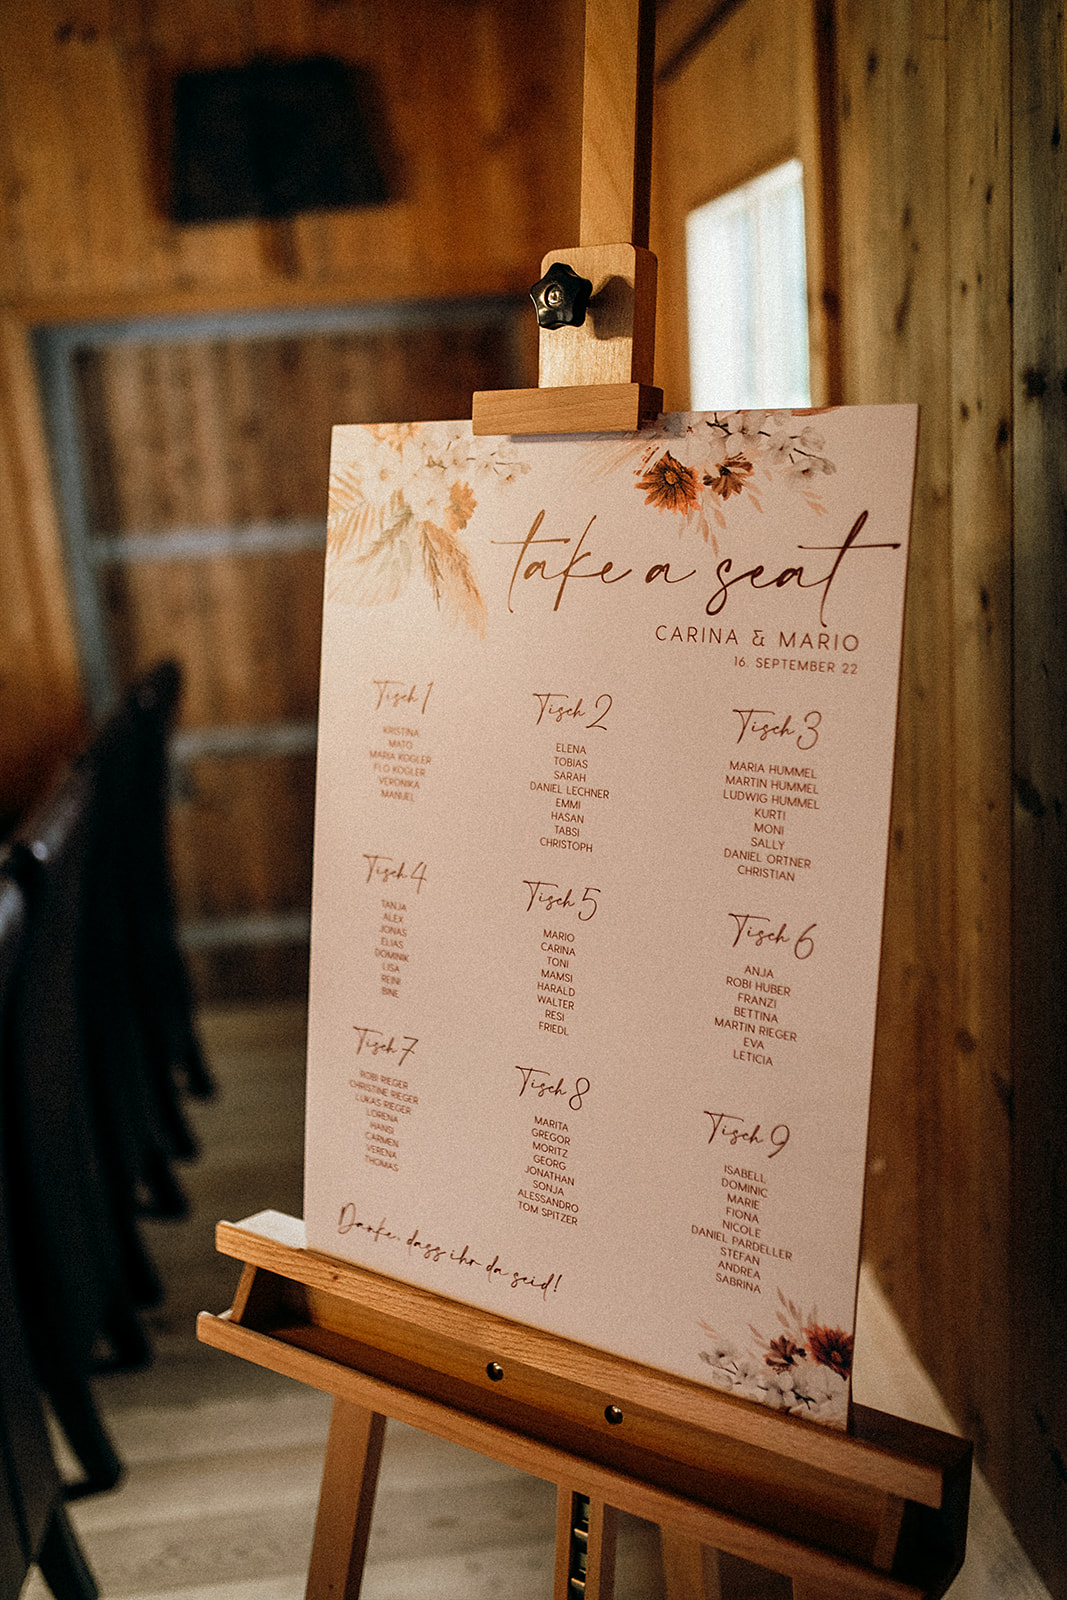 take a seat
CARINA & MARIO
16. SEPTEMBER 22
Tisch 1
KRISTINA
MATO
MARIA KOGLER
FLO KOGLER
VERONIKA
MANUEL
Tisch 2
ELENA
TOBIAS
SARAH
DANIEL LECHNER
EMMI
HASAN
TABSI
CHRISTOPH
Tisch 3
MARIA HUMMEL
MARTIN HUMMEL
LUDWIG HUMMEL
KURTI
MONI
SALLY
DANIEL ORTNER
CHRISTIAN
Tisch 4
TANJA
ALEX
JONAS
ELIAS
DOMINIK
LISA
REINI
BINE
Tisch 5
MARIO
CARINA
TONI
MAMSI
HARALD
WALTER
RESI
FRIEDL
Tisch 6
ANJA
ROBI HUBER
FRANZI
BETTINA
MARTIN RIEGER
EVA
LETICIA
Tisch 7
ROBI RIEGER
CHRISTINE RIEGER
LUKAS RIEGER
LORENA
HANSI
CARMEN
VERENA
THOMAS
Tisch 8
MARITA
GREGOR
MORITZ
GEORG
JONATHAN
SONJA
ALESSANDRO
TOM SPITZER
Tisch 9
ISABELL
DOMINIC
MARIE
FIONA
NICOLE
DANIEL PARDELLER
STEFAN
ANDREA
SABRINA
Danke, dass ihr da seid!